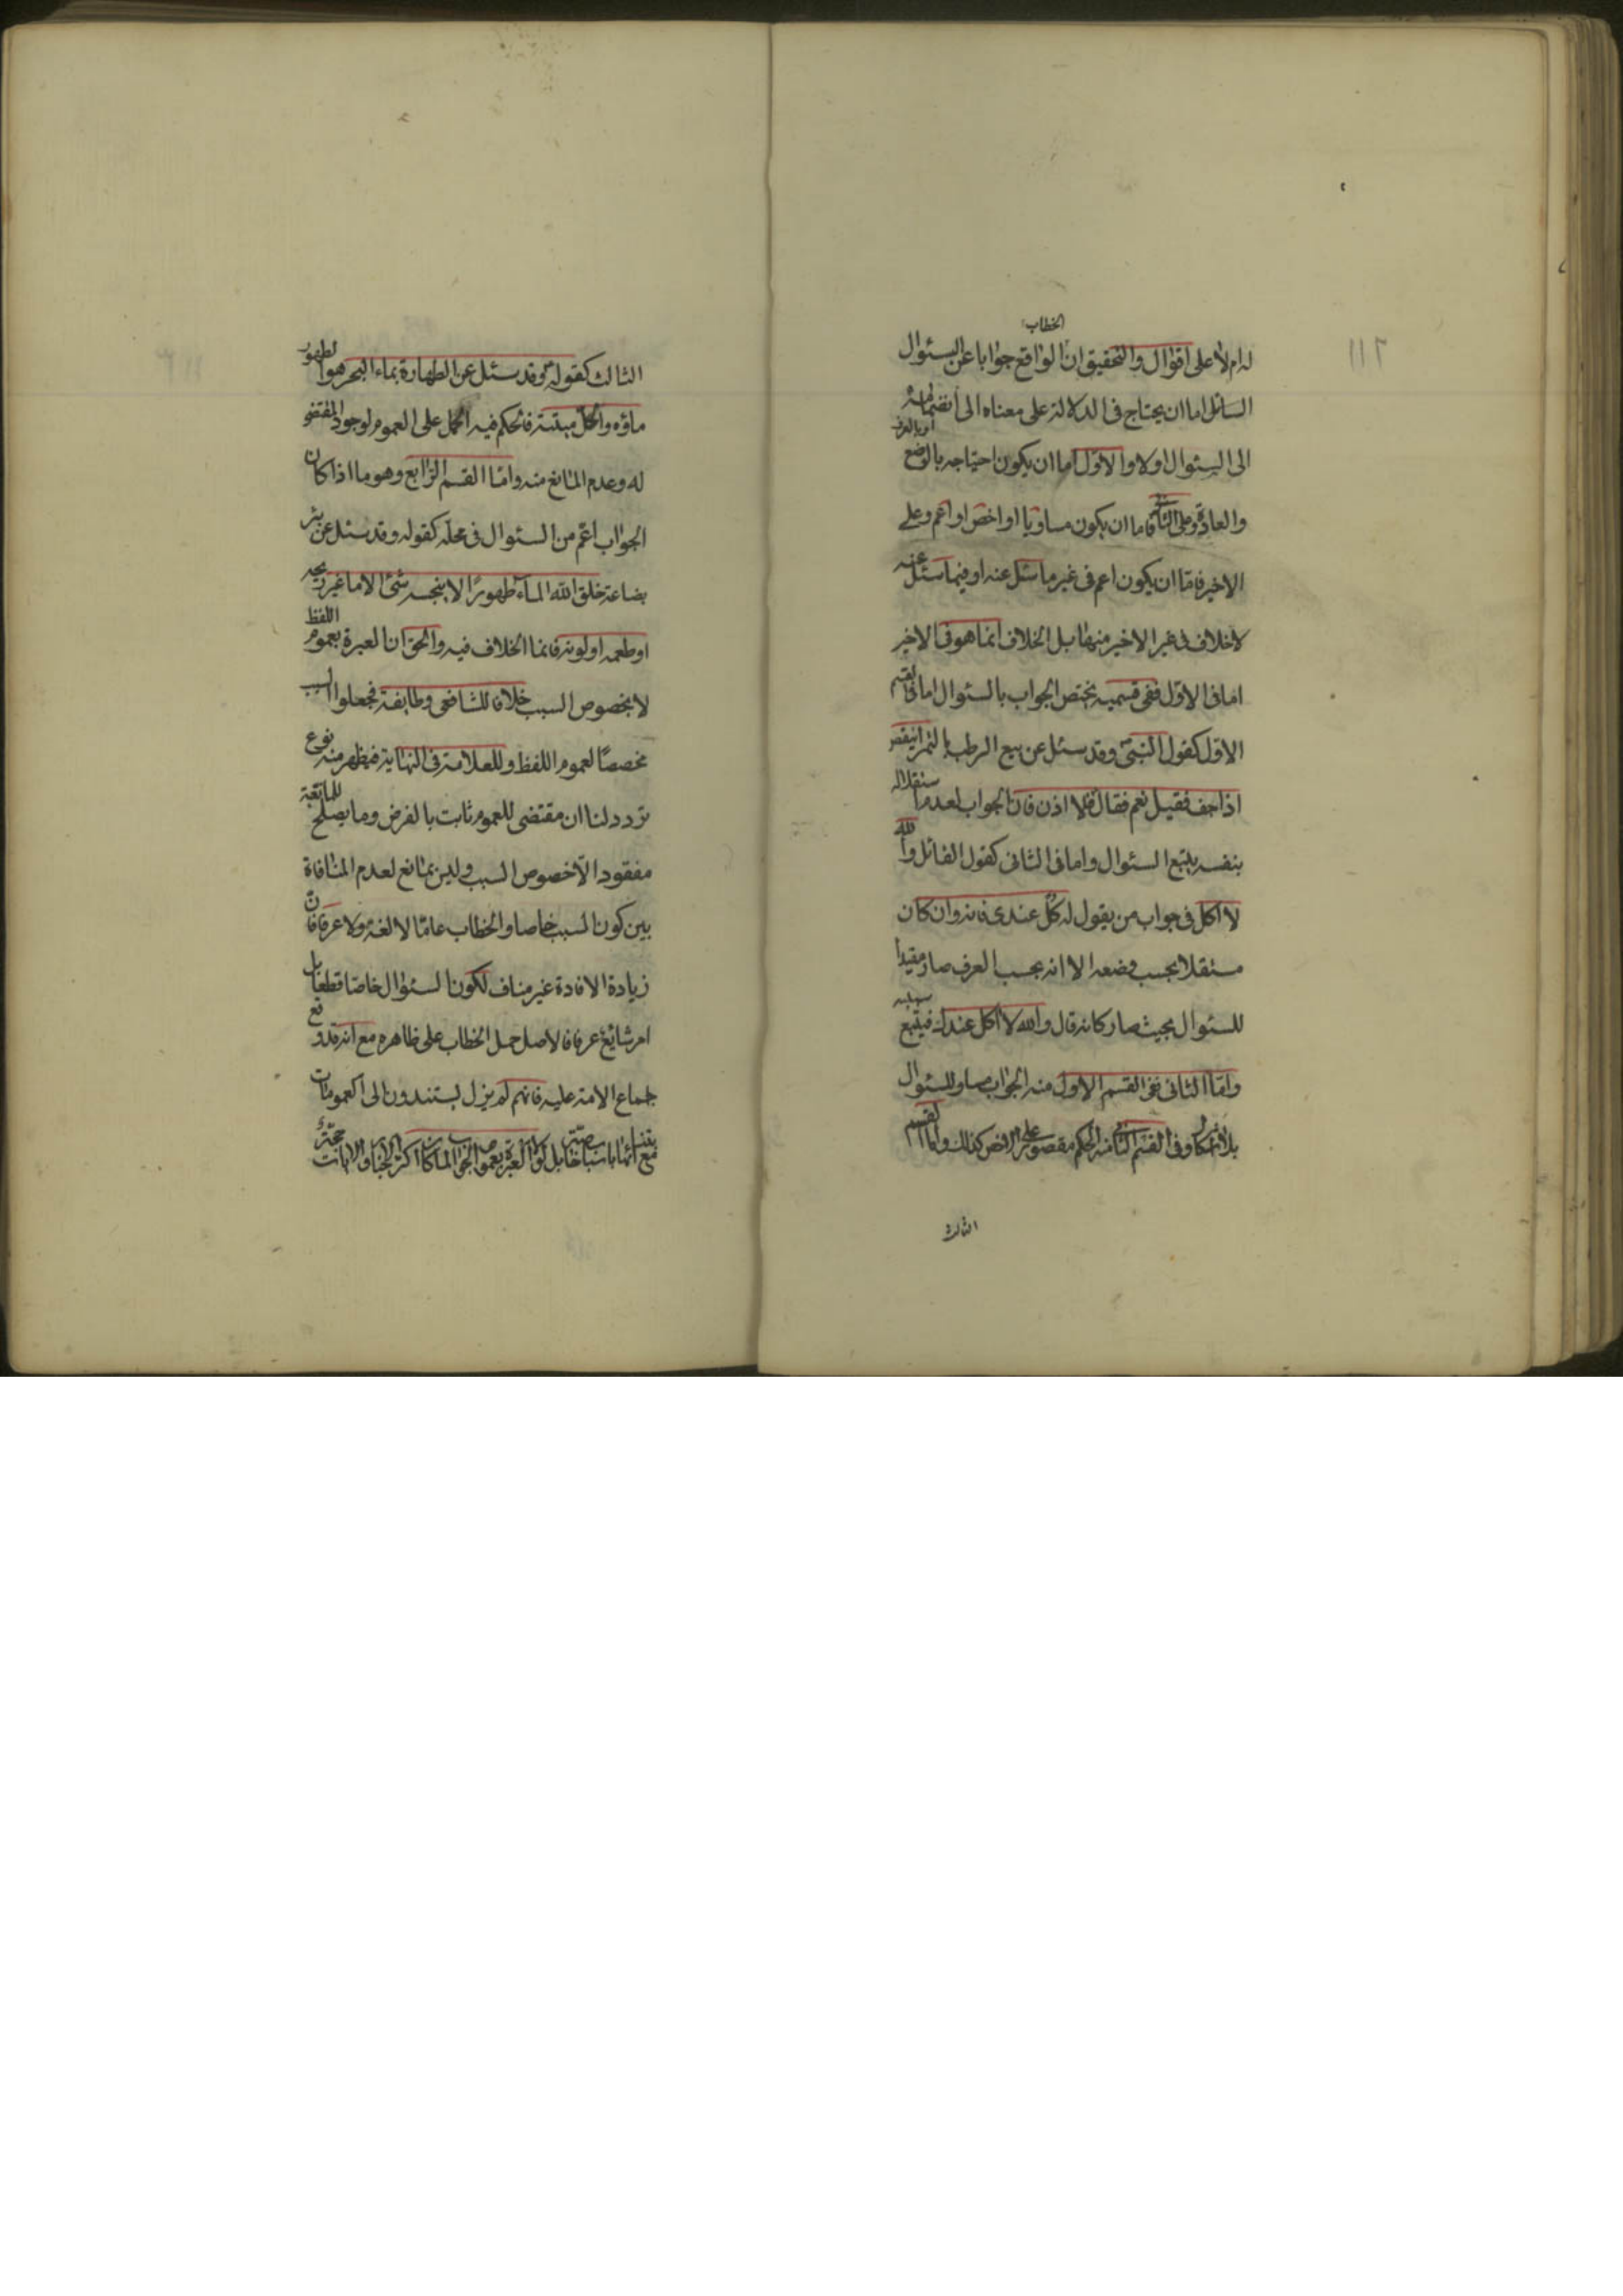 له ام لا على اقوال والتحقيق ان الخطاب الواقع جوابا عن السئوال
السائل اما ان يحتاج فى الدلالة على معناه الى انضمامه
الى السئوال اولا والاول اما ان يكون احتياجه بالوضع او بالعرف
والعادة وعلى الثانى فاما ان يكون مساويا او اخص او اعم وعلى
الاخير فاما ان يكون اعم فى غير ما سئل عنه او فيما سئل عنه
لاخلاف فى غير الاخير منها بل الخلاف انما هو فى الاخير
اما فى الاول ففى قسميه يختص الجواب بالسئوال اما فى القسم
الاول كقول النبى وقد سئل عن بيع الرطب بالتمر اينقص
اذا جف فقيل نعم فقال فلا اذن فان الجواب لعدم استقلاله
بنفسه يتبع السئوال واما فى الثانى كقول القائل والله
لا اكل فى جواب من يقول له كل عندى فانه وان كان
مستقلا بحسب وضعه الا انه بحسب العرف صار مقيدا
للسئوال بحيث صار كانه قال والله لا اكل عندك فيتبع
واما الثانى ففى القسم الاول منه الجواب مساو للسئوال
بلا اشكال وفى القسم الثانى منه الحكم مقصور على كذلك واما القسم
الثالث
الثالث كقوله وقد سئل عن الطهارة بماء البحر هو الطهور
ماؤه والحل ميتته فالحكم فيه الحمل على العموم لوجود المقتضى
له وعدم المانع منه واما القسم الرابع وهو ما اذا كان
الجواب اعم من السئوال فى محله كقوله وقد سئل عن بئر
بضاعة خلق الله الماء طهورا لا ينجسه شئ الا ما غير ريحه
او طعمه او لونه فانما الخلاف فيه والحق ان العبرة بعموم اللفظ
لا بخصوص السبب خلافا للشافعى وطايفة فجعلوا السبب
مخصصا لعموم اللفظ وللعلامة فى النهاية فيظهر منه نوع
تردد لنا ان مقتضى للعموم ثابت بالفرض وما يصلح للمانعية
مفقود الا خصوص السبب وليس بمانع لعدم المنافاة
بين كون السبب خاصا والخطاب عاما لا لغة ولا عرفا فان
زيادة الافادة غير مناف لكون السئوال خاصا قطعا بل
امر شايع عرفا فالاصل حمل الخطاب على ظاهره مع انه قد وقع
اجماع الامة عليه فانهم لم يزل يستندون الى العمومات